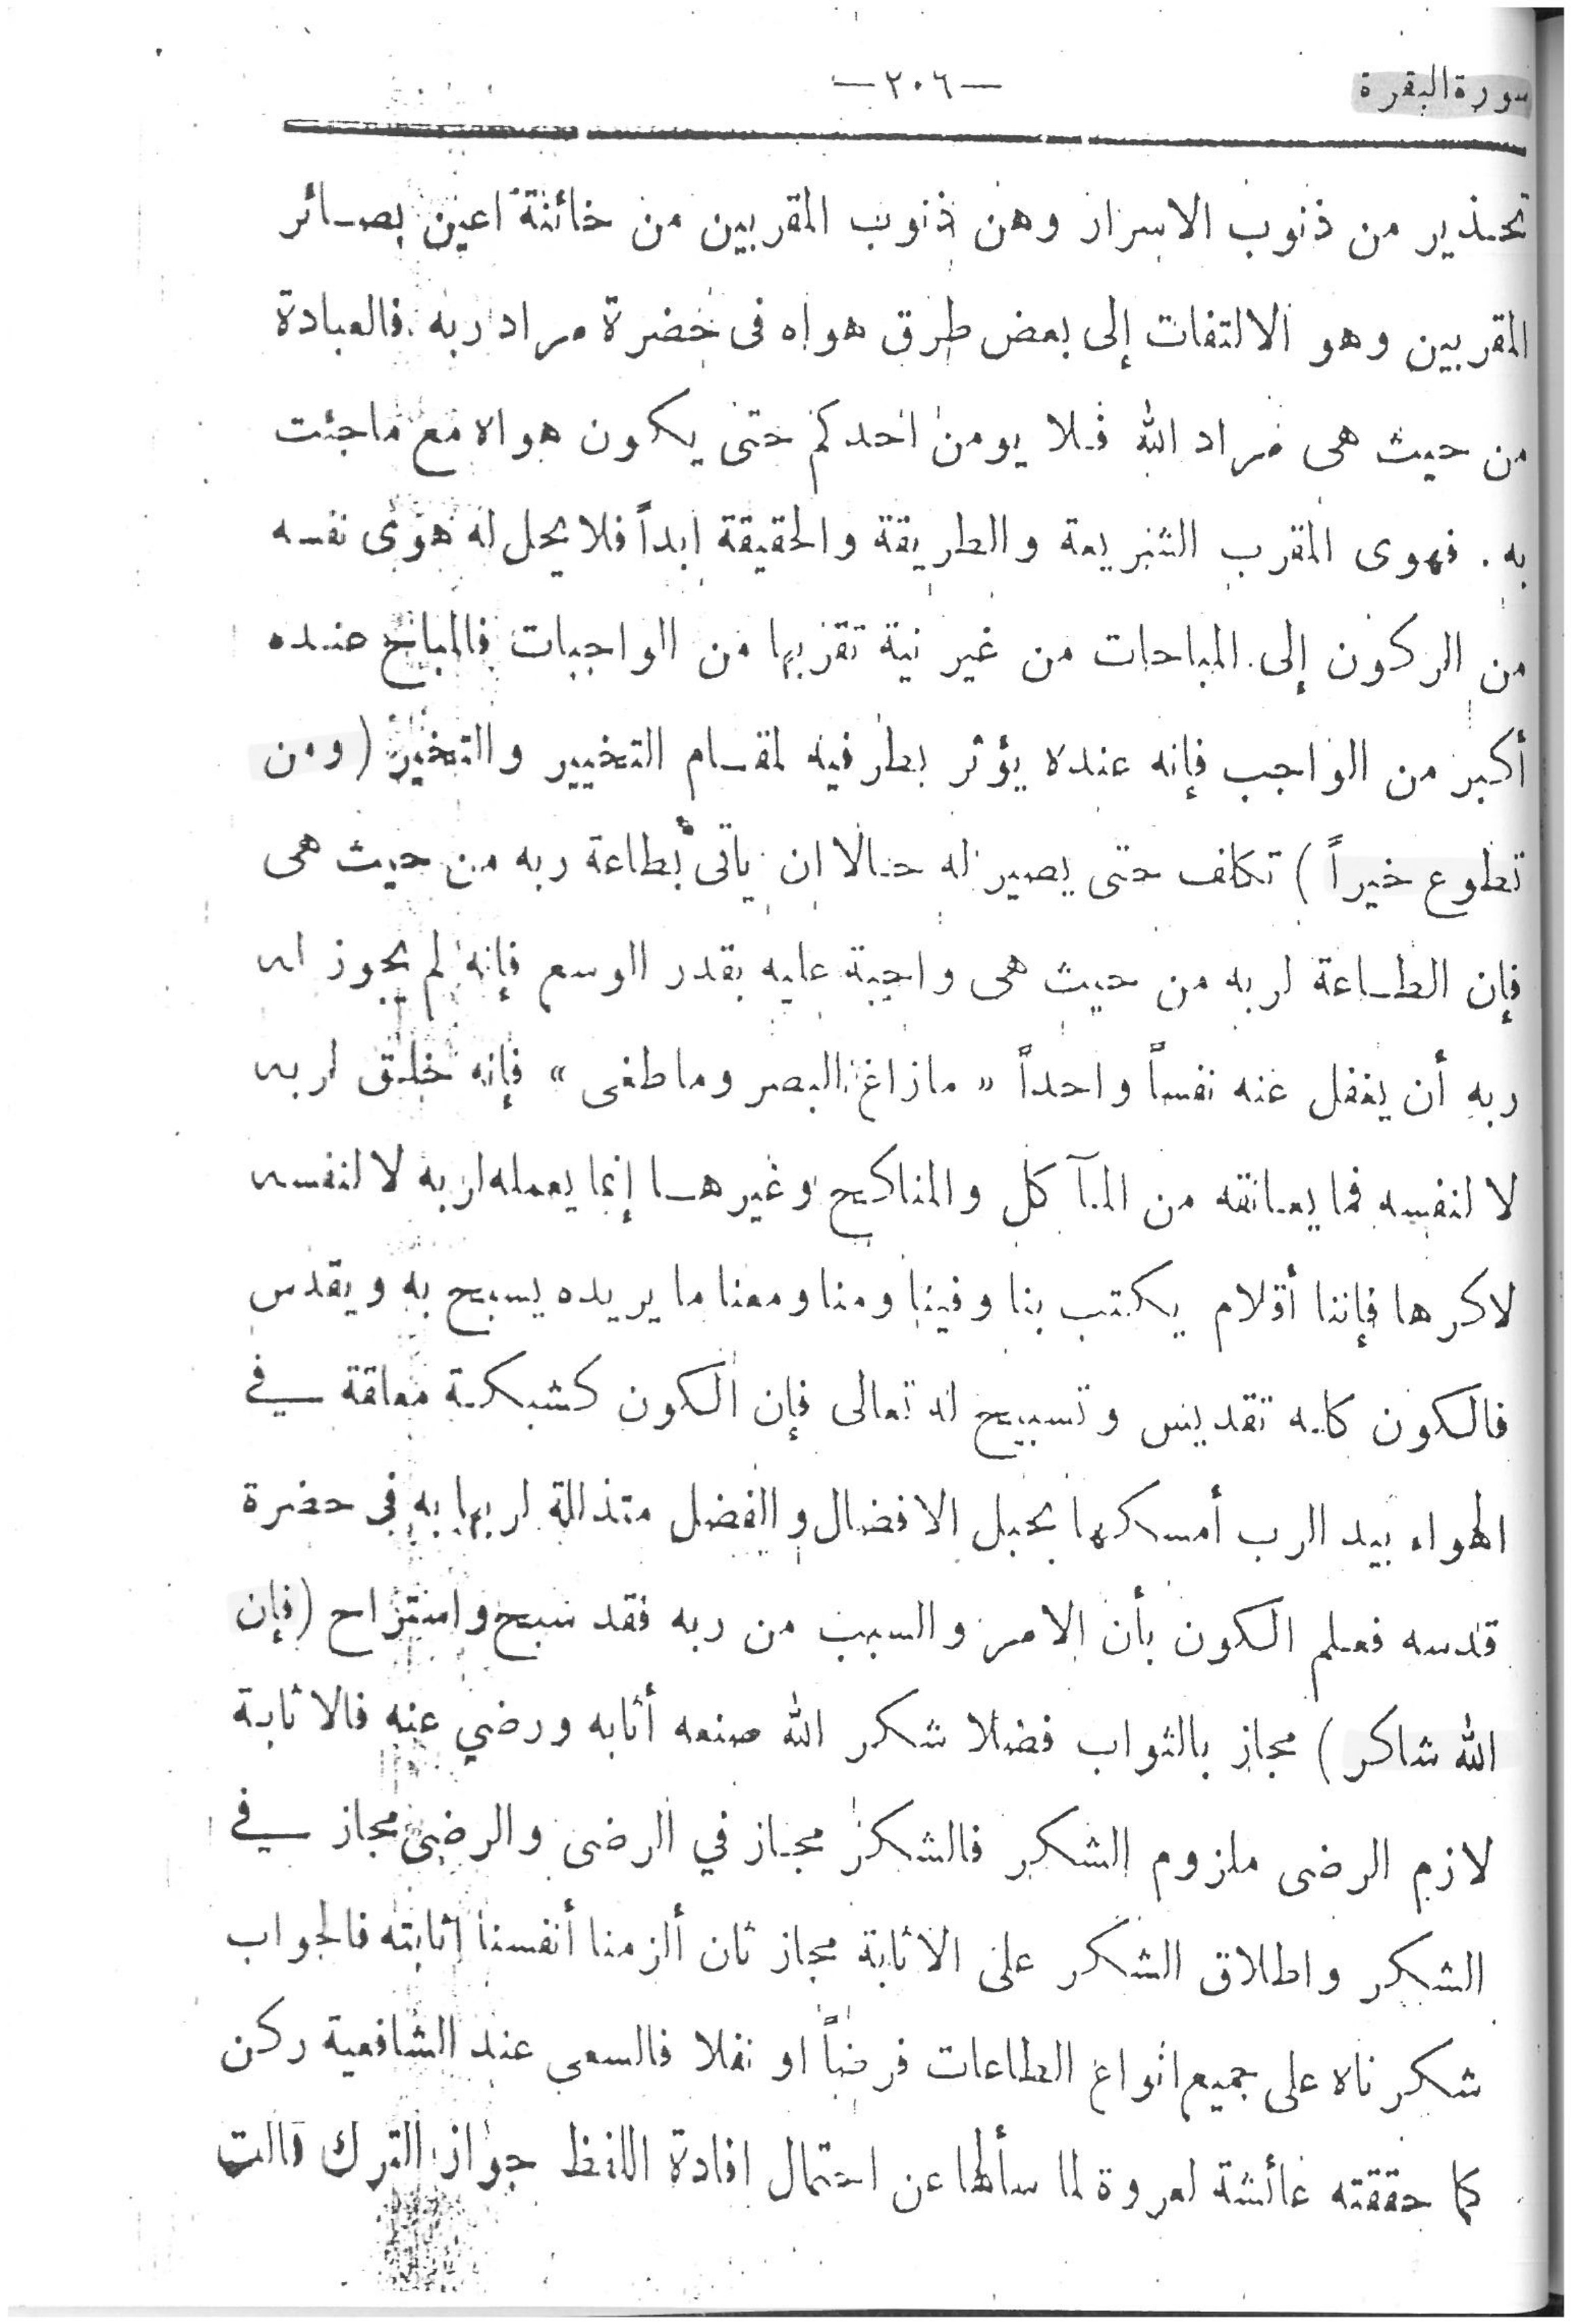 سورة البقرة
— ٢٠٦ —
تحذير من ذنوب الاسرار وهن ذنوب المقربين من خائنة اعين بصائر
المقربين وهو الالتفات إلى بعض طرق هواه فى حضرة مراد ربه . فالعبادة
من حيث هى مراد الله فلا يومن احدكم حتى يكون هواه مع ماجئت
به . فهوى المقرب الشريعة والطريقة والحقيقة ابداً فلا يحل له هوى نفسه
من الركون إلى المباحات من غير نية تقربها من الواجبات فالمباح عنده
أكبر من الواجب فإنه عنده يؤثر بطرفيه لمقام التخيير والتخير ( ومن
تطوع خيراً ) تكلف حتى يصير له حالا ان ياتى بطاعة ربه من حيث هى
فإن الطاعة لربه من حيث هى واجبة عليه بقدر الوسع فإنه لم يجوز له
ربه أن يغفل عنه نفساً واحداً « مازاغ البصر وماطغى » فإنه خلق لربه
لا لنفسه فما يعانقه من المآكل والمناكح وغيرها إنما يعمله لربه لا لنفسه
لاكرها فإننا أقلام يكتب بنا وفينا ومنا ومعنا ما يريده يسبح به ويقدس
فالكون كله تقديس وتسبيح له تعالى فإن الكون كشبكة معلقة في
الهواء بيد الرب أمسكها بحبل الافضال والفضل متذللة لربها به فى حضرة
قدسه فعلم الكون بأن الامر والسبب من ربه فقد سبح واستراح ( فإن
الله شاكر ) مجاز بالثواب فضلا شكر الله صنعه أثابه ورضي عنه فالاثابة
لازم الرضى ملزوم الشكر فالشكر مجاز في الرضى والرضى مجاز في
الشكر واطلاق الشكر على الاثابة مجاز ثان ألزمنا أنفسنا اثابته فالجواب
شكرناه على جميع انواع الطاعات فرضاً او نفلا فالسعى عند الشافعية ركن
كما حققته عائشة لعروة لما سألها عن احتمال افادة اللفظ جواز الترك قالت